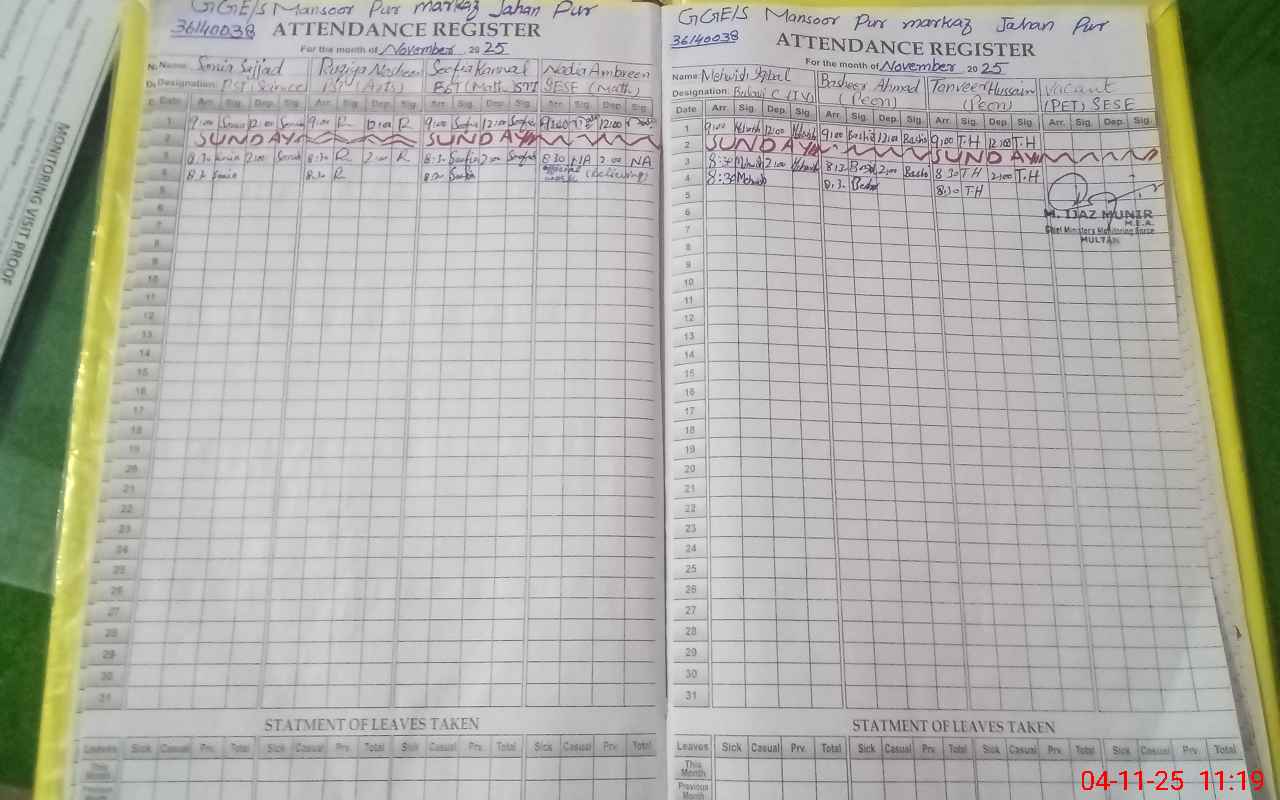 GGE/S Mansoor Pur markaz Jahan Pur
36140038 ATTENDANCE REGISTER
For the month of November 2025
Name: Sonia Sajjad Ruqiya Nosheen Safia Kanwal Nadia Ambreen
Designation: PST (Science) PST (Arts) EST (Math) SESE (Math)
Date Arr. Sig. Dep. Sig. Arr. Sig. Dep. Sig. Arr. Sig. Dep. Sig. Arr. Sig. Dep. Sig.
1 9:00 Sonia 12:00 Sonia 9:00 R 12:00 R 9:00 Safia 12:00 Safia 9:00 12:00
2 SUNDAY SUNDAY
3 8:30 Sonia 2:00 Sonia 8:30 R 2:00 R 8:30 Safia 2:00 Safia 8:30 NA 2:00 NA
4 8:30 Sonia 8:30 R 8:30 Safia
5
6
7
8
9
10
11
12
13
14
15
16
17
18
19
20
21
22
23
24
25
26
27
28
29
30
31
STATMENT OF LEAVES TAKEN
Leaves Sick Casual Prv. Total Sick Casual Prv. Total Sick Casual Prv. Total Sick Casual Prv. Total
This Month
Previous Month
GGE/S Mansoor Pur markaz Jahan Pur
36140038 ATTENDANCE REGISTER
For the month of November 2025
Name: Mehwish Iqbal Basheer Ahmad Tanveer Hussain Vacant
Designation: (Peon) (Peon) (PET) SESE
Date Arr. Sig. Dep. Sig. Arr. Sig. Dep. Sig. Arr. Sig. Dep. Sig. Arr. Sig. Dep. Sig.
1 9:00 Mehwish 12:00 Mehwish 9:00 Bashir 12:00 Bashir 9:00 T.H 12:00 T.H
2 SUNDAY SUNDAY
3 8:30 Mehwish 2:00 Mehwish 8:30 2:00 8:30 T.H 2:00 T.H
4 8:30 Mehwish 8:30 8:30 T.H
5
6
7
8
9
10
11
12
13
14
15
16
17
18
19
20
21
22
23
24
25
26
27
28
29
30
31
M. IJAZ MUNIR
M.E.A.
Chief Minister's Monitoring Force
MULTAN
STATMENT OF LEAVES TAKEN
Leaves Sick Casual Prv. Total Sick Casual Prv. Total Sick Casual Prv. Total Sick Casual Prv. Total
This Month
Previous Month
MONITORING VISIT PROOF
04-11-25 11:19